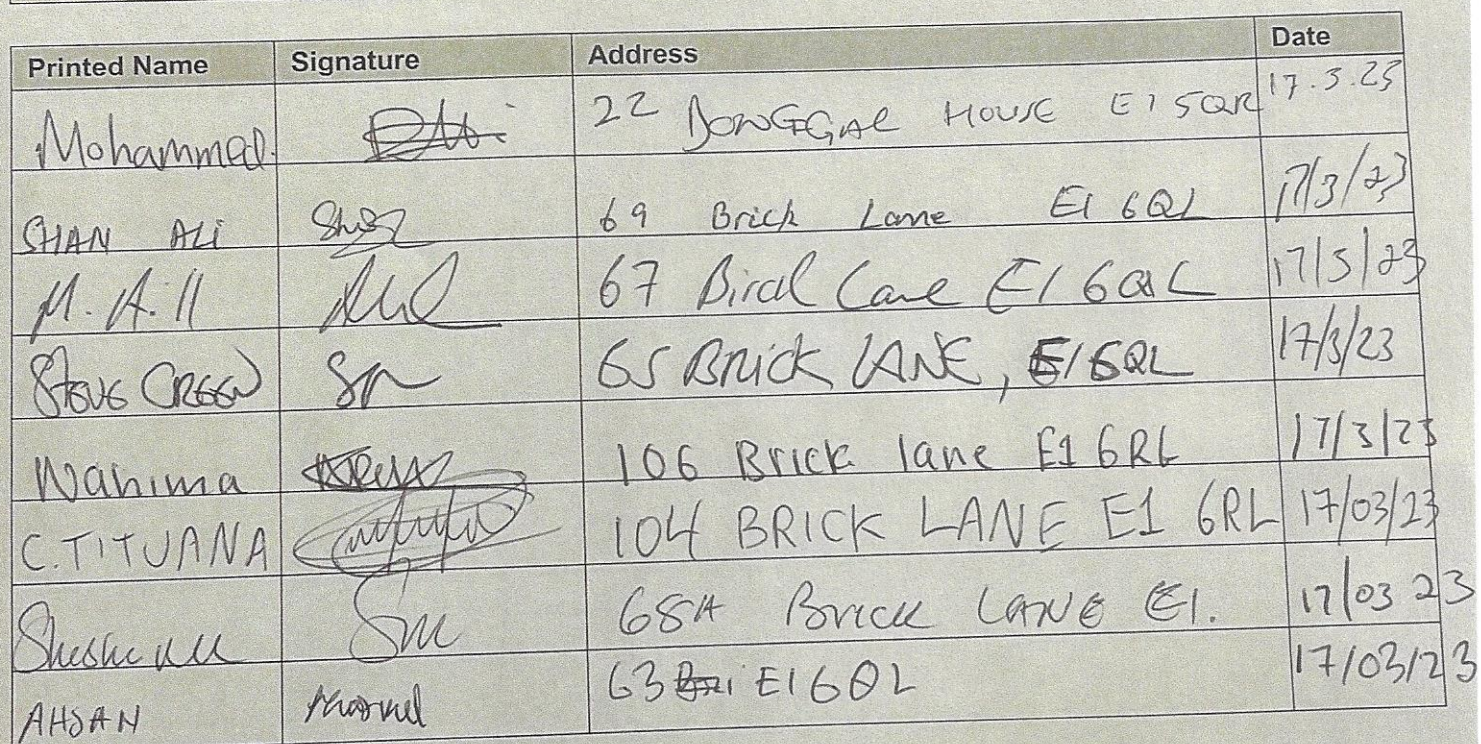 Printed Name Signature Address Date
Mohammed. 22 HOUSE E1 5QR 17.3.23
SHAN ALI Shan 69 Brick Lane E1 6QL 17/3/23
M. A. 67 Lane E1 6QL 17/3/23
65 Brick LANE, E1 6QL 17/3/23
Wahima 106 Brick lane E1 6RL 17/3/23
C. TITUANA 104 BRICK LANE E1 6RL 17/03/23
Brick LANE E1. 17/03 23
AHSAN 63 E1 6QL 17/03/23